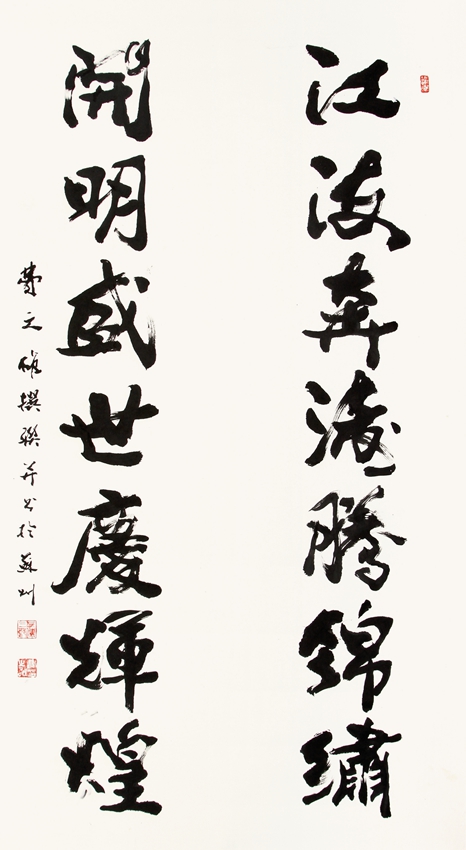 江海奔濤騰錦繡
開明盛世慶輝煌
文撰聯并书於蘇州